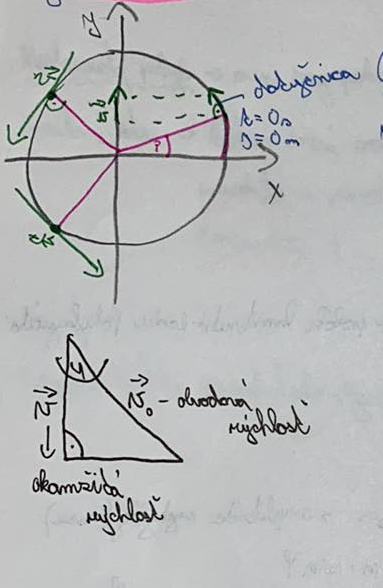 y
v⃗
v⃗
dotyčnica (
t=0s
s=0m
φ
x
φ
v⃗
v⃗₀ - obvodová
rýchlosť
okamžitá
rýchlosť